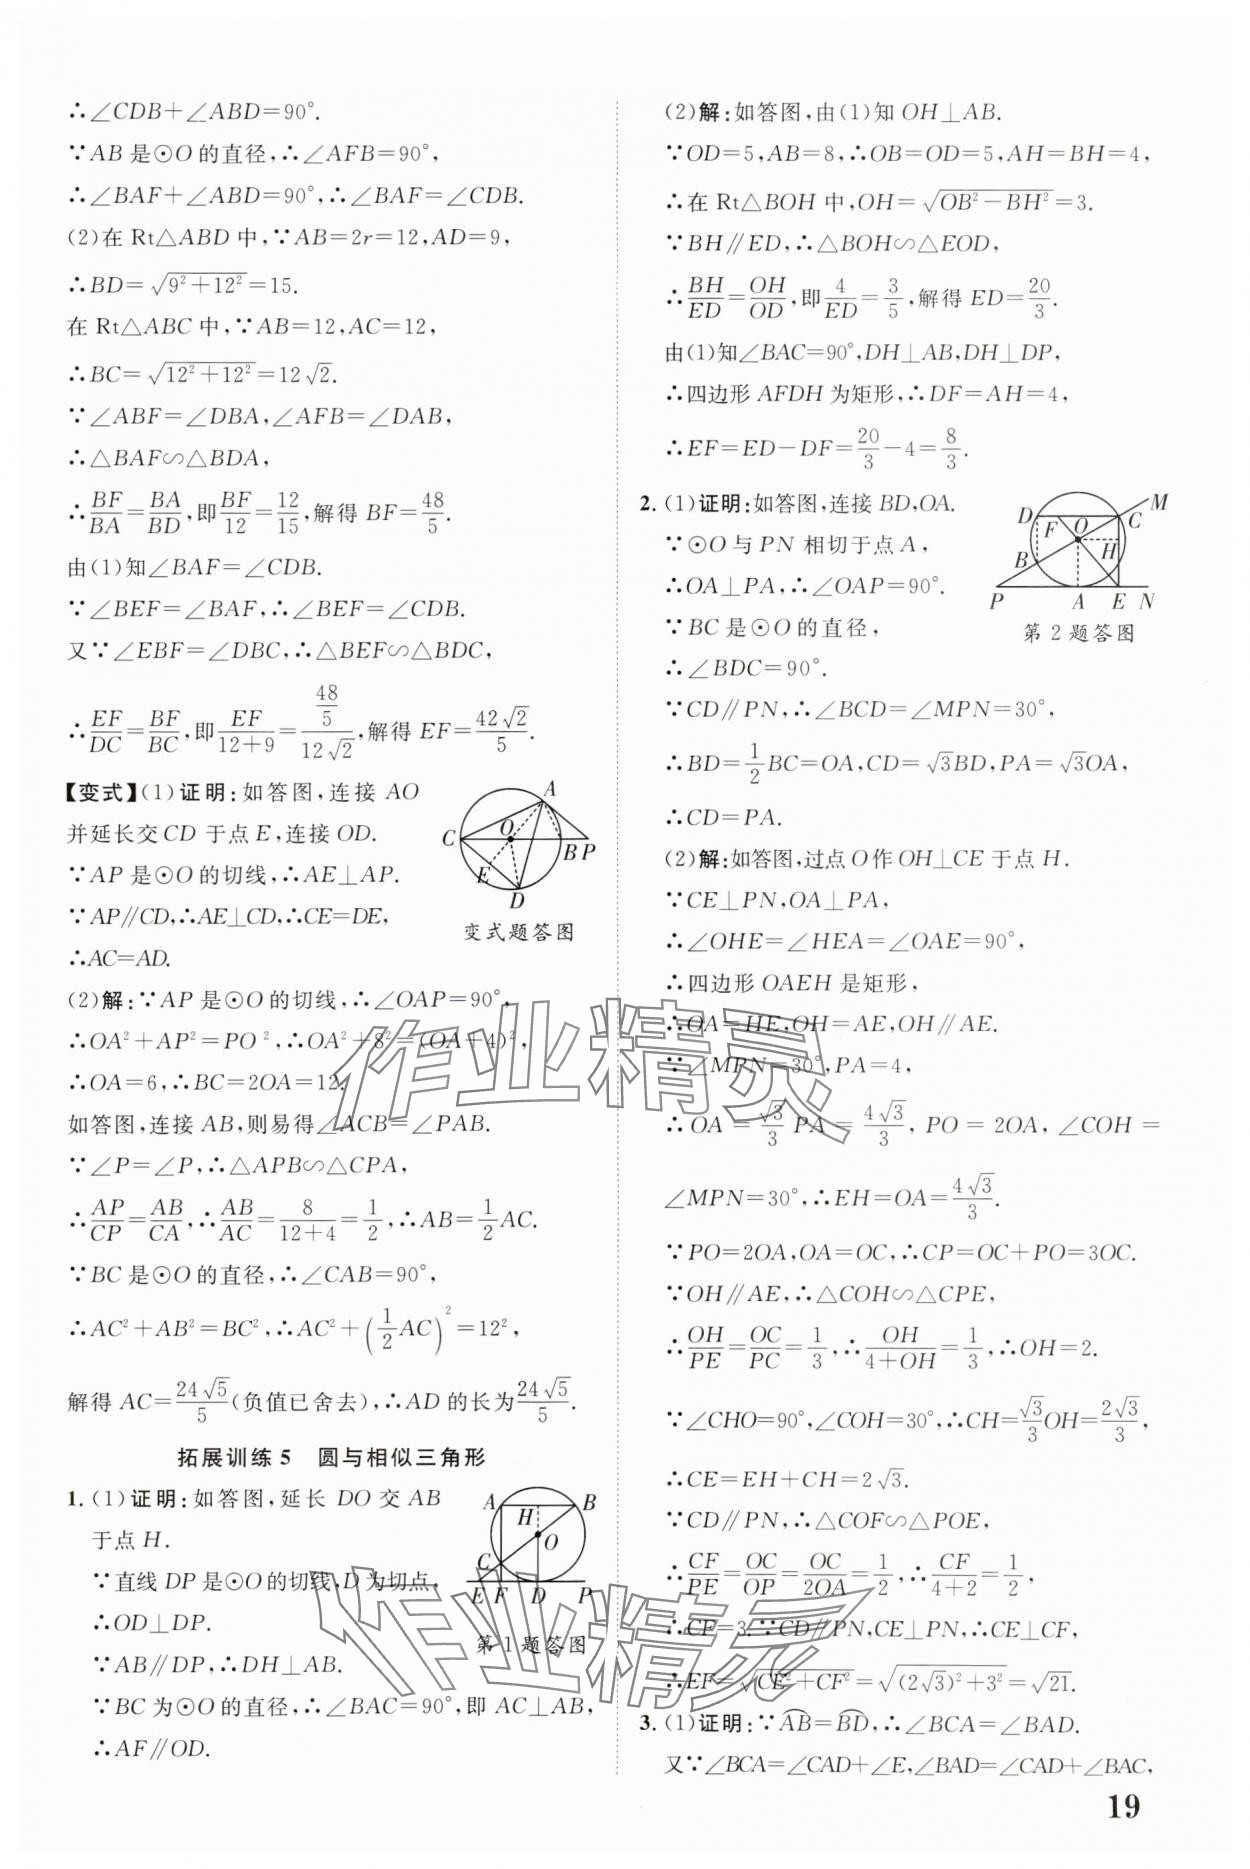 ∴∠CDB+∠ABD=90°.
∵AB是⊙O的直径,∴∠AFB=90°,
∴∠BAF+∠ABD=90°,∴∠BAF=∠CDB.
(2)在 Rt△ABD 中,∵AB=2r=12,AD=9,
∴BD=√(9²+12²)=15.
在 Rt△ABC 中,∵AB=12,AC=12,
∴BC=√(12²+12²)=12√2.
∵∠ABF=∠DBA,∠AFB=∠DAB,
∴△BAF∽△BDA,
∴BF/BA=BA/BD,即BF/12=12/15,解得 BF=48/5.
由(1)知∠BAF=∠CDB.
∵∠BEF=∠BAF,∴∠BEF=∠CDB.
又∵∠EBF=∠DBC,∴△BEF∽△BDC,
∴EF/DC=BF/BC,即EF/(12+9)=(48/5)/(12√2),解得 EF=42√2/5.
【变式】(1)证明:如答图,连接 AO
并延长交 CD 于点 E,连接 OD.
∵AP 是⊙O的切线,∴AE⊥AP.
∵AP∥CD,∴AE⊥CD,∴CE=DE,
∴AC=AD.
A
C
O
B
P
E
D
变式题答图
(2)解:∵AP 是⊙O的切线,∴∠OAP=90°,
∴OA²+AP²=PO²,∴OA²+8²=(OA+4)²,
∴OA=6,∴BC=2OA=12.
如答图,连接 AB,则易得∠ACB=∠PAB.
∵∠P=∠P,∴△APB∽△CPA,
∴AP/CP=AB/CA,∴AB/AC=8/(12+4)=1/2,∴AB=1/2AC.
∵BC 是⊙O的直径,∴∠CAB=90°,
∴AC²+AB²=BC²,∴AC²+(1/2AC)²=12²,
解得 AC=24√5/5(负值已舍去),∴AD 的长为24√5/5.
拓展训练5 圆与相似三角形
1. (1)证明:如答图,延长 DO 交 AB
于点 H.
∵直线 DP 是⊙O的切线,D为切点,
∴OD⊥DP.
∵AB∥DP,∴DH⊥AB.
∵BC 为⊙O的直径,∴∠BAC=90°,即 AC⊥AB,
∴AF∥OD.
A
H
B
O
C
E
F
D
P
第1题答图
(2)解:如答图,由(1)知 OH⊥AB.
∵OD=5,AB=8,∴OB=OD=5,AH=BH=4,
∴在 Rt△BOH 中,OH=√(OB²-BH²)=3.
∵BH∥ED,∴△BOH∽△EOD,
∴BH/ED=OH/OD,即4/ED=3/5,解得 ED=20/3.
由(1)知∠BAC=90°,DH⊥AB,DH⊥DP,
∴四边形 AFDH 为矩形,∴DF=AH=4,
∴EF=ED-DF=20/3-4=8/3.
2. (1)证明:如答图,连接 BD,OA.
∵⊙O与PN 相切于点 A,
∴OA⊥PA,∴∠OAP=90°.
∵BC 是⊙O的直径,
∴∠BDC=90°.
D
F
O
C
M
B
H
P
A
E
N
第2题答图
∵CD∥PN,∴∠BCD=∠MPN=30°,
∴BD=1/2BC=OA,CD=√3BD,PA=√3OA,
∴CD=PA.
(2)解:如答图,过点 O 作 OH⊥CE 于点 H.
∵CE⊥PN,OA⊥PA,
∴∠OHE=∠HEA=∠OAE=90°,
∴四边形 OAEH 是矩形,
∴OA=HE,OH=AE,OH∥AE.
∵∠MPN=30°,PA=4,
∴OA=√3/3PA=4√3/3,PO=2OA,∠COH=
∠MPN=30°,∴EH=OA=4√3/3.
∵PO=2OA,OA=OC,∴CP=OC+PO=3OC.
∵OH∥AE,∴△COH∽△CPE,
∴OH/PE=OC/PC=1/3,∴OH/(4+OH)=1/3,∴OH=2.
∵∠CHO=90°,∠COH=30°,∴CH=√3/3OH=2√3/3,
∴CE=EH+CH=2√3.
∵CD∥PN,∴△COF∽△POE,
∴CF/PE=OC/OP=OC/2OA=1/2,∴CF/(4+2)=1/2,
∴CF=3.∵CD∥PN,CE⊥PN,∴CE⊥CF,
∴EF=√(CE²+CF²)=√((2√3)²+3²)=√21.
3. (1)证明:∵AB⌒=BD⌒,∴∠BCA=∠BAD.
又∵∠BCA=∠CAD+∠E,∠BAD=∠CAD+∠BAC,
19
作业精灵
作业精灵